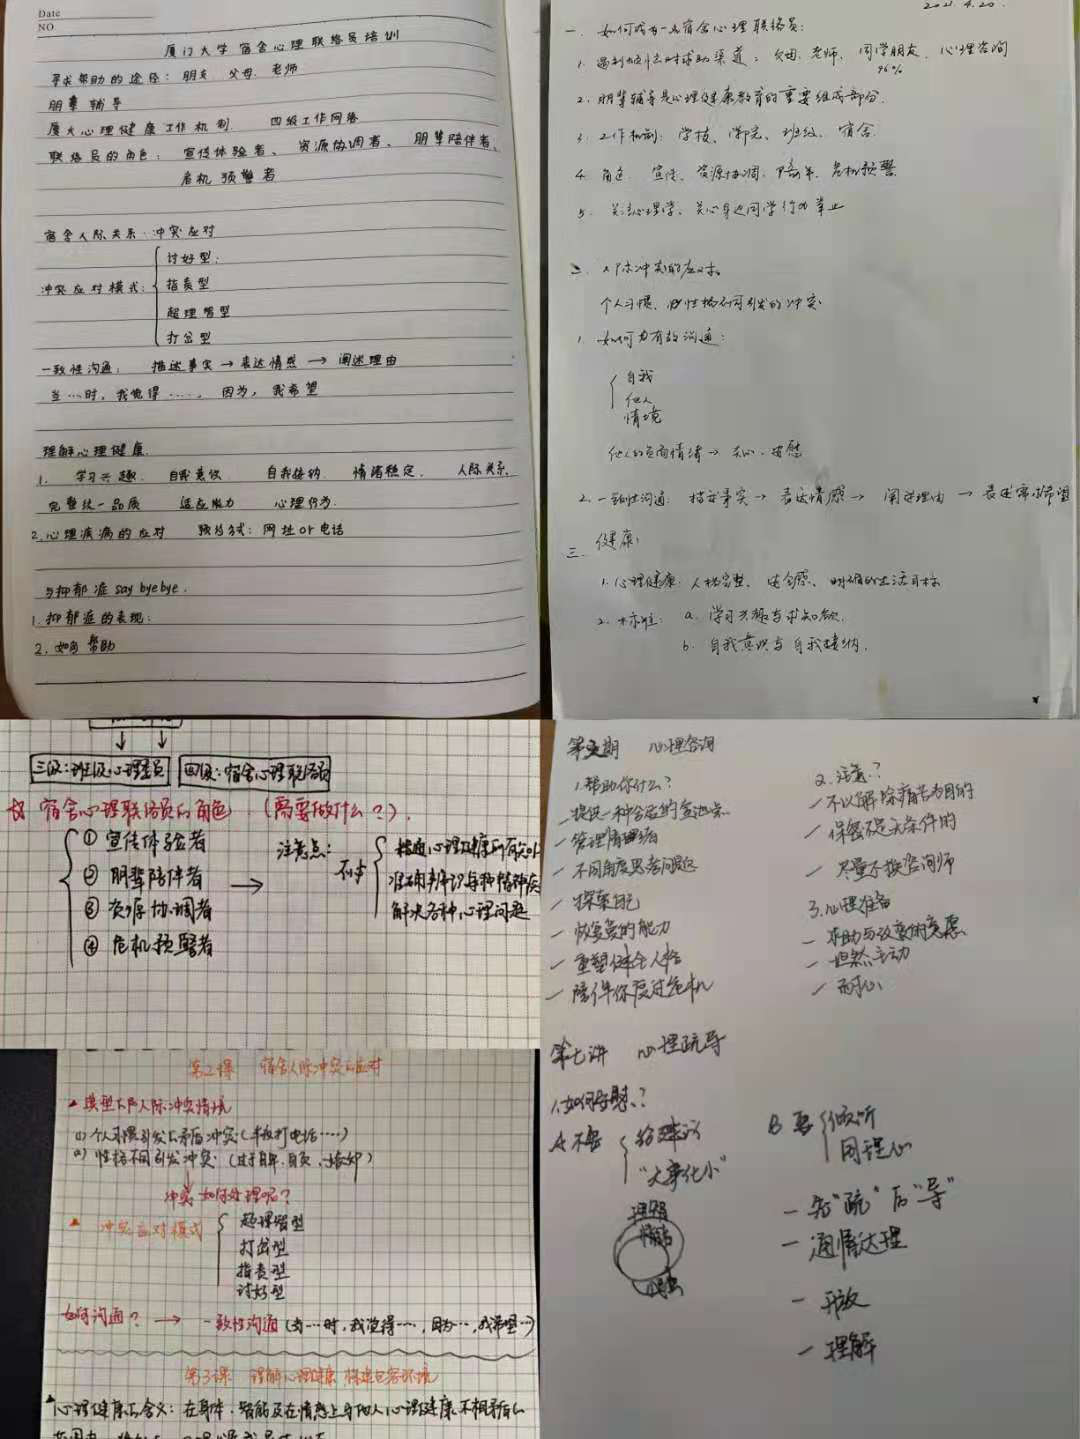 Date
NO
厦门大学宿舍心理联络员培训
寻求帮助的途径：朋友 父母 老师
朋辈辅导
厦大心理健康工作机制 四级工作网络
联络员的角色：宣传体验者、资源协调者、朋辈陪伴者、
危机预警者
宿舍人际关系·冲突应对
冲突应对模式：
讨好型：
指责型
超理智型
打岔型
一致性沟通： 描述事实→表达情感→阐述理由
当…时，我觉得……，因为，我希望
理解心理健康
1. 学习兴趣 自我意识 自我接纳 情绪稳定 人际关系
完整统一品质 适应能力 心理行为
2.心理疾病的应对 预约方式：网址or电话
与抑郁症say byebye.
1.抑郁症的表现：
2.如何帮助
2021.4.20
一、如何成为一名宿舍心理联络员：
求助渠道：父母、老师、同学朋友、心理咨询
96%
2. 朋辈辅导是心理健康教育的重要组成部分.
3. 工作机制：学校、学院、班级、宿舍
4. 角色 宣传、资源协调、陪伴、危机预警
5. 关注心理学、关心身边同学行为举止
二、人际冲突的应对
个人习惯、性格不同引发的冲突
1. 如何有效沟通：
自我
他人
情境
他人的负面情绪→关心、安慰
2. 一致性沟通：描述事实→表达情感→阐述理由→表述希望
三、健康：
1.心理健康：人格完整、安全感、明确的生活目标
2. 标准： a. 学习兴趣与求知欲.
b. 自我意识与自我接纳.
三级：班级心理委员 四级：宿舍心理联络员
宿舍心理联络员的角色（需要做什么？）.
① 宣传体验者
② 朋辈陪伴者
③ 资源协调者
④ 危机预警者
→ 注意点：
精通心理健康所有知识
准确辨识每种精神疾
解决各种心理问题
第2课 宿舍人际冲突的应对
典型的人际冲突情境
(1) 个人习惯引发的矛盾冲突（半夜打电话……）
(2) 性格不同引发冲突
冲突如何处理呢？
冲突应对模式
超理智型
打岔型
指责型
讨好型
如何沟通？→一致性沟通（当…时，我觉得…，因为…，我希望…）
第3课 理解心理健康
心理健康的含义：在身体、智能及在情感上与他人心理健康不相矛盾的
心理咨询
1.帮助你什么？
- 管理情绪
- 不同角度思考问题
- 探索自己
- 恢复爱的能力
- 重塑健全人格
- 陪伴你度过危机
2.注意？
- 不以解除痛苦为目的
- 保密不是无条件的
- 尽量不换咨询师
3.心理准备
- 求助与改变的意愿
- 坦然主动
- 耐心
第七讲 心理疏导
1.如何安慰？
A 不要
给建议
“大事化小”
B 要
倾听
同理心
- 先“疏”后“导”
- 通情达理
- 开放
- 理解
理智
情绪